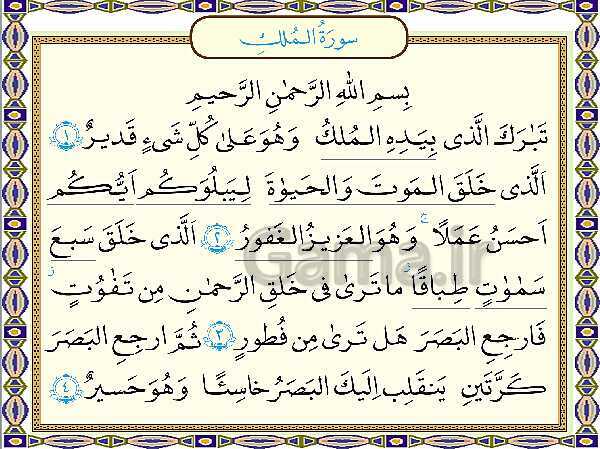 سورَةُ المُلكِ
بِسمِ اللهِ الرَّحمٰنِ الرَّحيمِ
تَبٰرَكَ الَّذى بِيَدِهِ المُلكُ وَهُوَ عَلىٰ كُلِّ شَىءٍ قَديرٌ ﴿١﴾
اَلَّذى خَلَقَ المَوتَ وَالحَيوٰةَ لِيَبلُوَكُم اَيُّكُم
اَحسَنُ عَمَلًا ۚ وَهُوَ العَزيزُ الغَفورُ ﴿٢﴾ اَلَّذى خَلَقَ سَبعَ
سَمٰوٰتٍ طِباقًا ۖ ما تَرىٰ فى خَلقِ الرَّحمٰنِ مِن تَفٰوُتٍ ۖ
فَارجِعِ البَصَرَ هَل تَرىٰ مِن فُطورٍ ﴿٣﴾ ثُمَّ ارجِعِ البَصَرَ
كَرَّتَينِ يَنقَلِب اِلَيكَ البَصَرُ خاسِئًا وَهُوَ حَسيرٌ ﴿٤﴾
Gama.ir